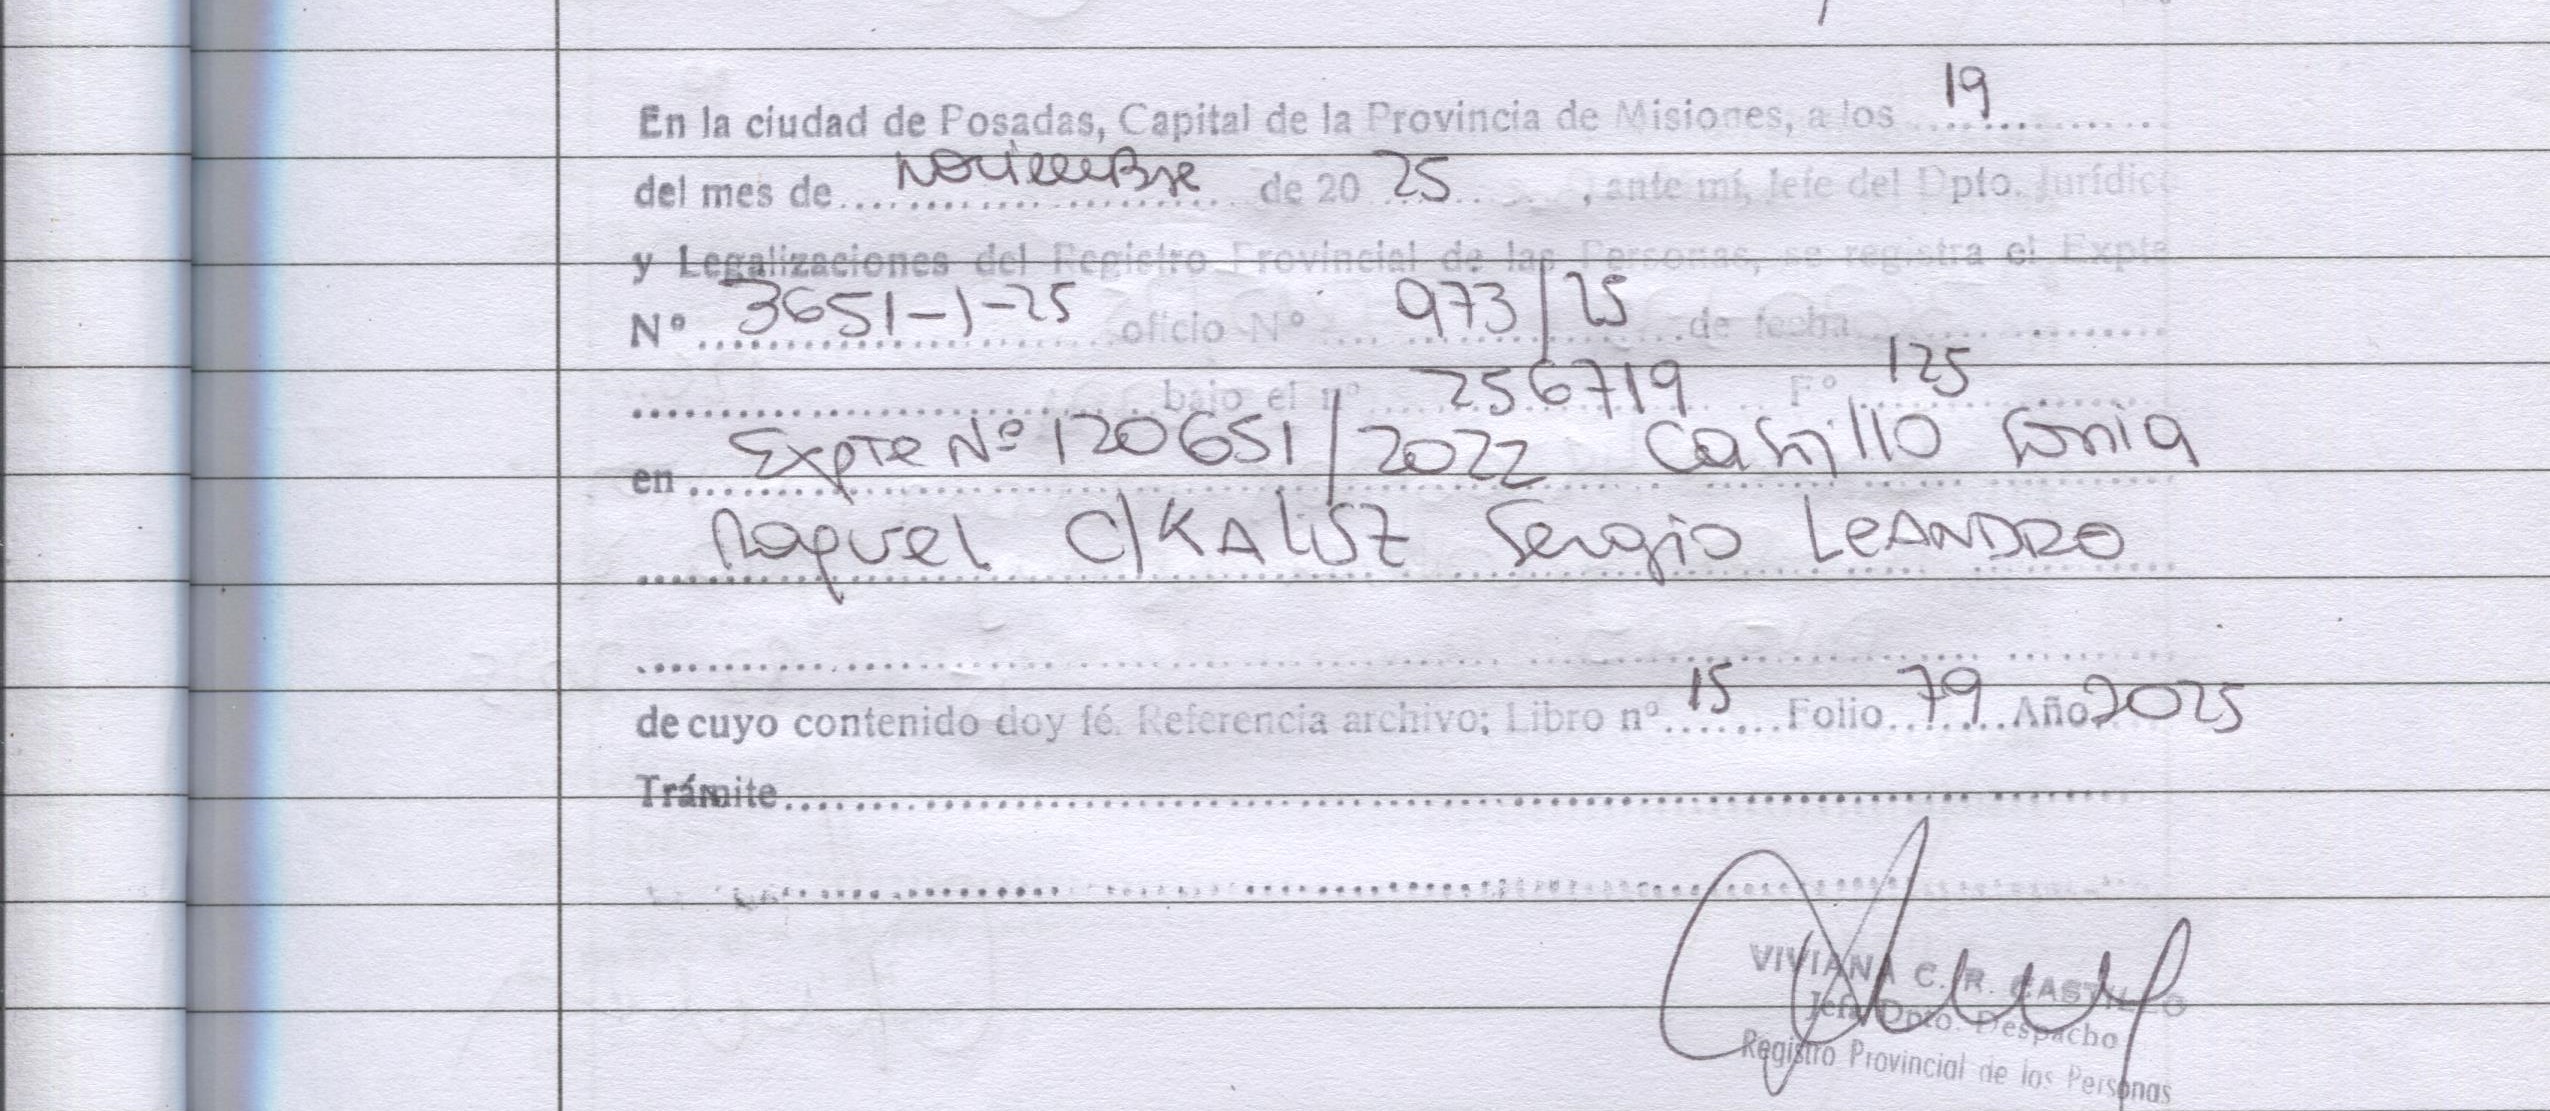 19
En la ciudad de Posadas, Capital de la Provincia de Misiones, a los ...............
del mes de ... Noviembre ... de 20 25 ..... , ante mí, Jefe del Dpto. Jurídico
y Legalizaciones del Registro Provincial de las Personas, se registra el Expte
Nº 3651-1-25 oficio Nº 973/25 de fecha ...............
............... bajo el nº 256719 Fº 125
en Expte Nº 120651/2022 Castillo Sonia
Raquel C/KALISZ Sergio LeANDRO
...............
de cuyo contenido doy fé. Referencia archivo; Libro nº 15 Folio 79 Año 2025
Trámite...............
...............
VIVIANA C. R. CASTILLO
Jefa Dpto. Despacho
Registro Provincial de las Personas